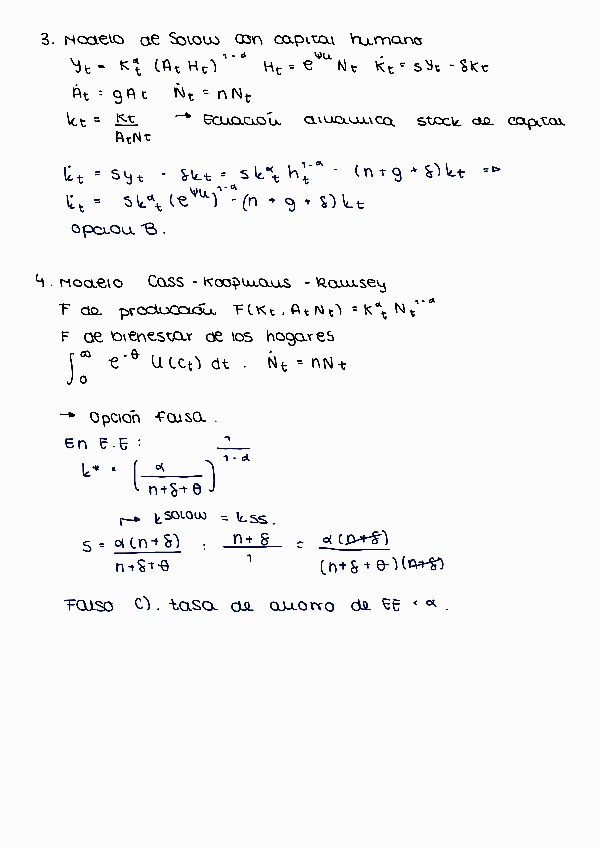 3. Modelo de Solow con capital humano
Yt = Kt^α (At Ht)^1-α   Ht = e^ψu Nt   K̇t = sYt - δKt
Ȧt = gAt   Ṅt = nNt
kt = Kt / AtNt → Ecuación dinámica stock de capital
k̇t = syt - δkt = skt^α ht^1-α - (n+g+δ)kt ⇒
k̇t = skt^α (e^ψu)^1-α - (n+g+δ)kt
opción B.
4. Modelo Cass-Koopmans-Ramsey
F de producción F(Kt, AtNt) = Kt^α Nt^1-α
F de bienestar de los hogares
∫0^∞ e^-θ U(ct) dt . Ṅt = nNt
→ Opción falsa.
En E.E:
k* = (α / n+δ+θ)^1/1-α
↦ k^SOLOW = kss.
s = α(n+δ) / n+δ+θ : n+δ / 1 = α(n+δ) / (n+δ+θ)(n+δ)
Falso C). tasa de ahorro de EE < α.